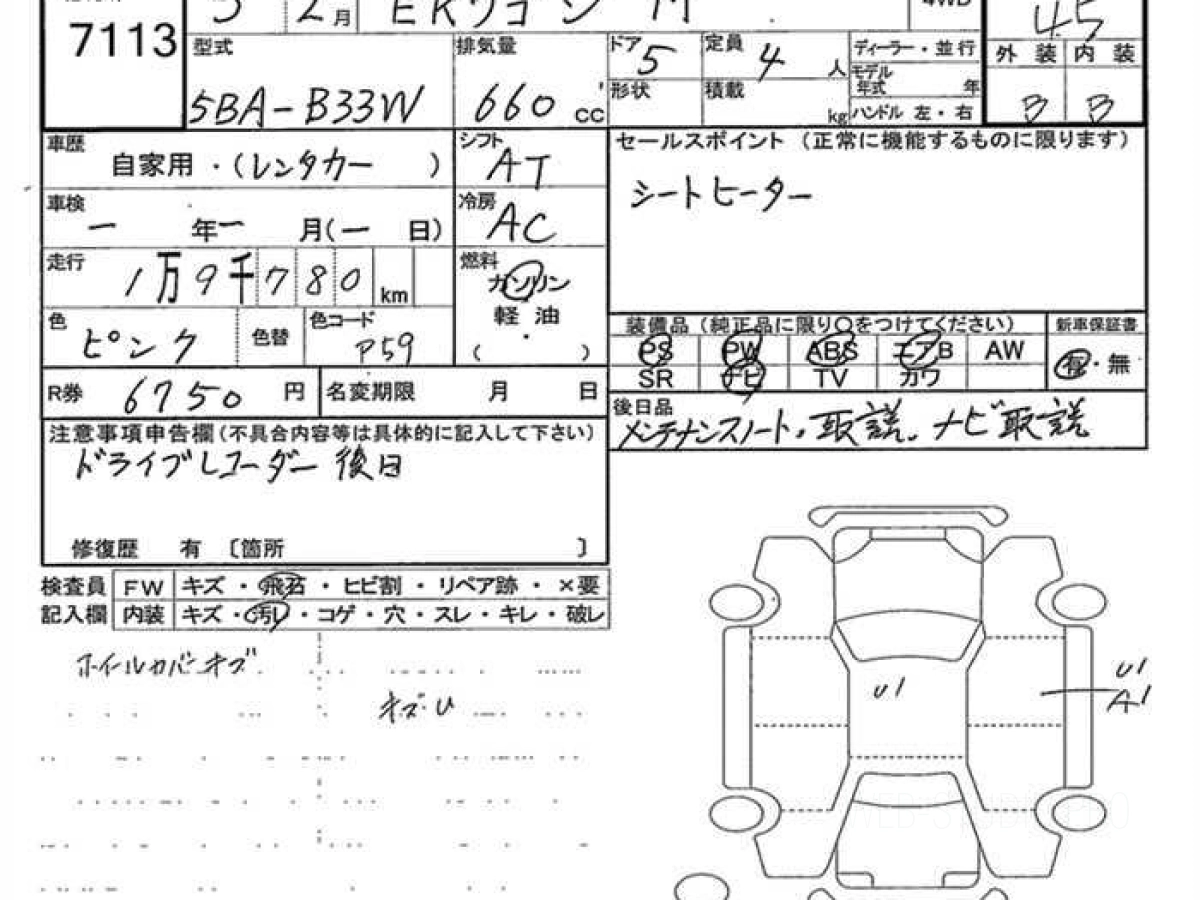 7113
5 2月 EKワゴン M 4WD
4.5
型式 5BA-B33W
排気量 660 cc
ドア 5
定員 4 人
ディーラー・並行
モデル年式 年
ハンドル 左・右
形状
積載 kg
外装 内装
B B
車歴 自家用・(レンタカー )
シフト AT
セールスポイント (正常に機能するものに限ります)
シートヒーター
車検 ー 年 ー 月(ー 日)
冷房 AC
走行 1万9千780km
燃料 ガソリン
軽油
・
( )
色 ピンク 色替 色コード P59
装備品 (純正品に限り○をつけてください) 新車保証書
PS PW ABS エアB AW 有・無
SR ナビ TV カワ
R券 6750 円 名変期限 月 日
後日品
メンテナンスノート、取説、ナビ取説
注意事項申告欄(不具合内容等は具体的に記入して下さい)
ドライブレコーダー後日
修復歴 有 〔箇所 〕
検査員 FW キズ・飛石・ヒビ割・リペア跡・×要
記入欄 内装 キズ・汚れ・コゲ・穴・スレ・キレ・破レ
ホイルカバーキズ
キズ・U
U1
U1
A1